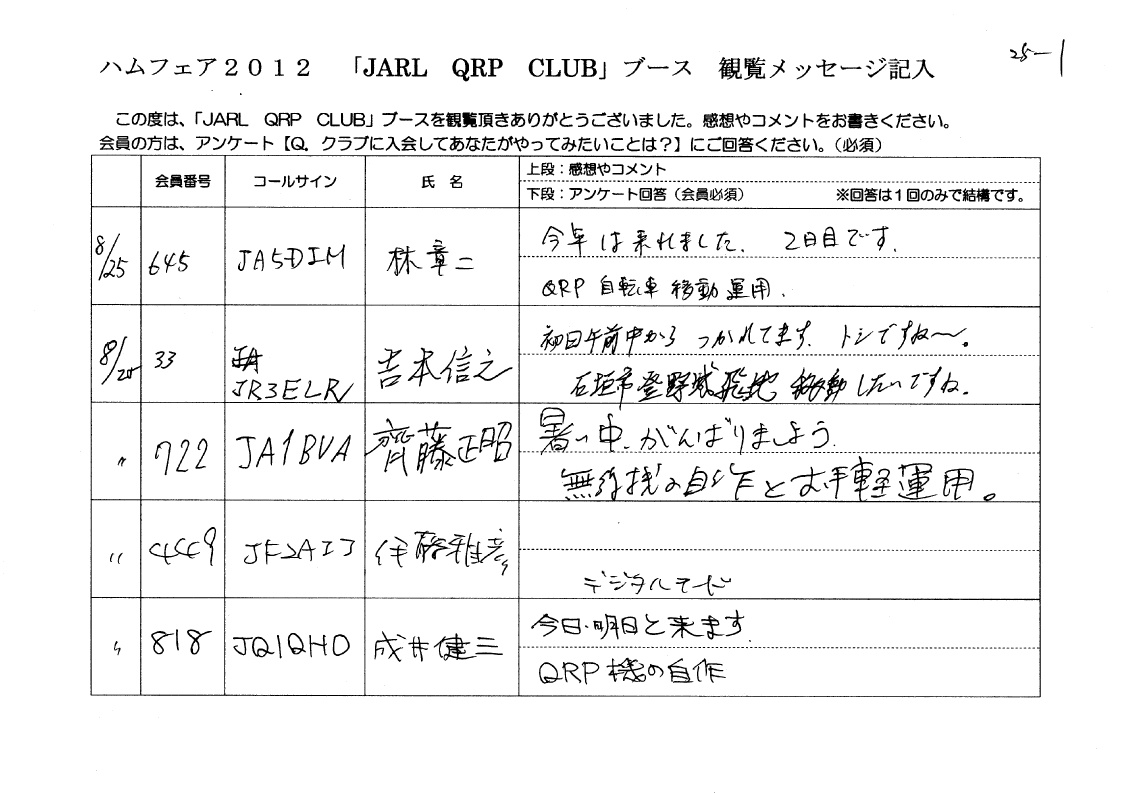 25-1
ハムフェア2012 「JARL QRP CLUB」ブース 観覧メッセージ記入
この度は、「JARL QRP CLUB」ブースを観覧頂きありがとうございました。感想やコメントをお書きください。
会員の方は、アンケート【Q. クラブに入会してあなたがやってみたいことは?】にご回答ください。(必須)
会員番号 コールサイン 氏 名 上段:感想やコメント
下段:アンケート回答(会員必須) ※回答は1回のみで結構です。
8/25 645 JA5DIM 林章二 今年は来れました. 2日目です.
QRP 自転車 移動運用.
8/25 33 JR3ELR 吉本信之 初日午前中から つかれてます. トシですね〜。
石垣市登野城 移動したいですね.
〃 722 JA1BVA 齊藤正昭 暑い中、がんばりましよう.
無線機の自作とお手軽運用。
〃 4449 伊藤雅彦
デジタルモード
〃 818 JQ1QHO 成井健三 今日・明日と来ます.
QRP機の自作